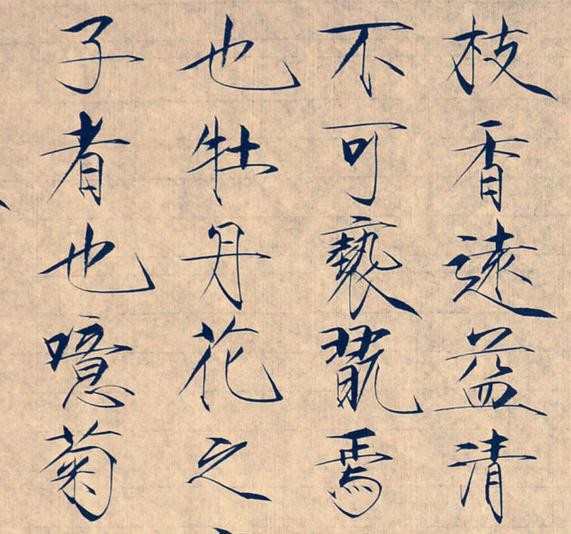 枝香遠益清
不可褻翫焉
也牡丹花之
子者也噫菊